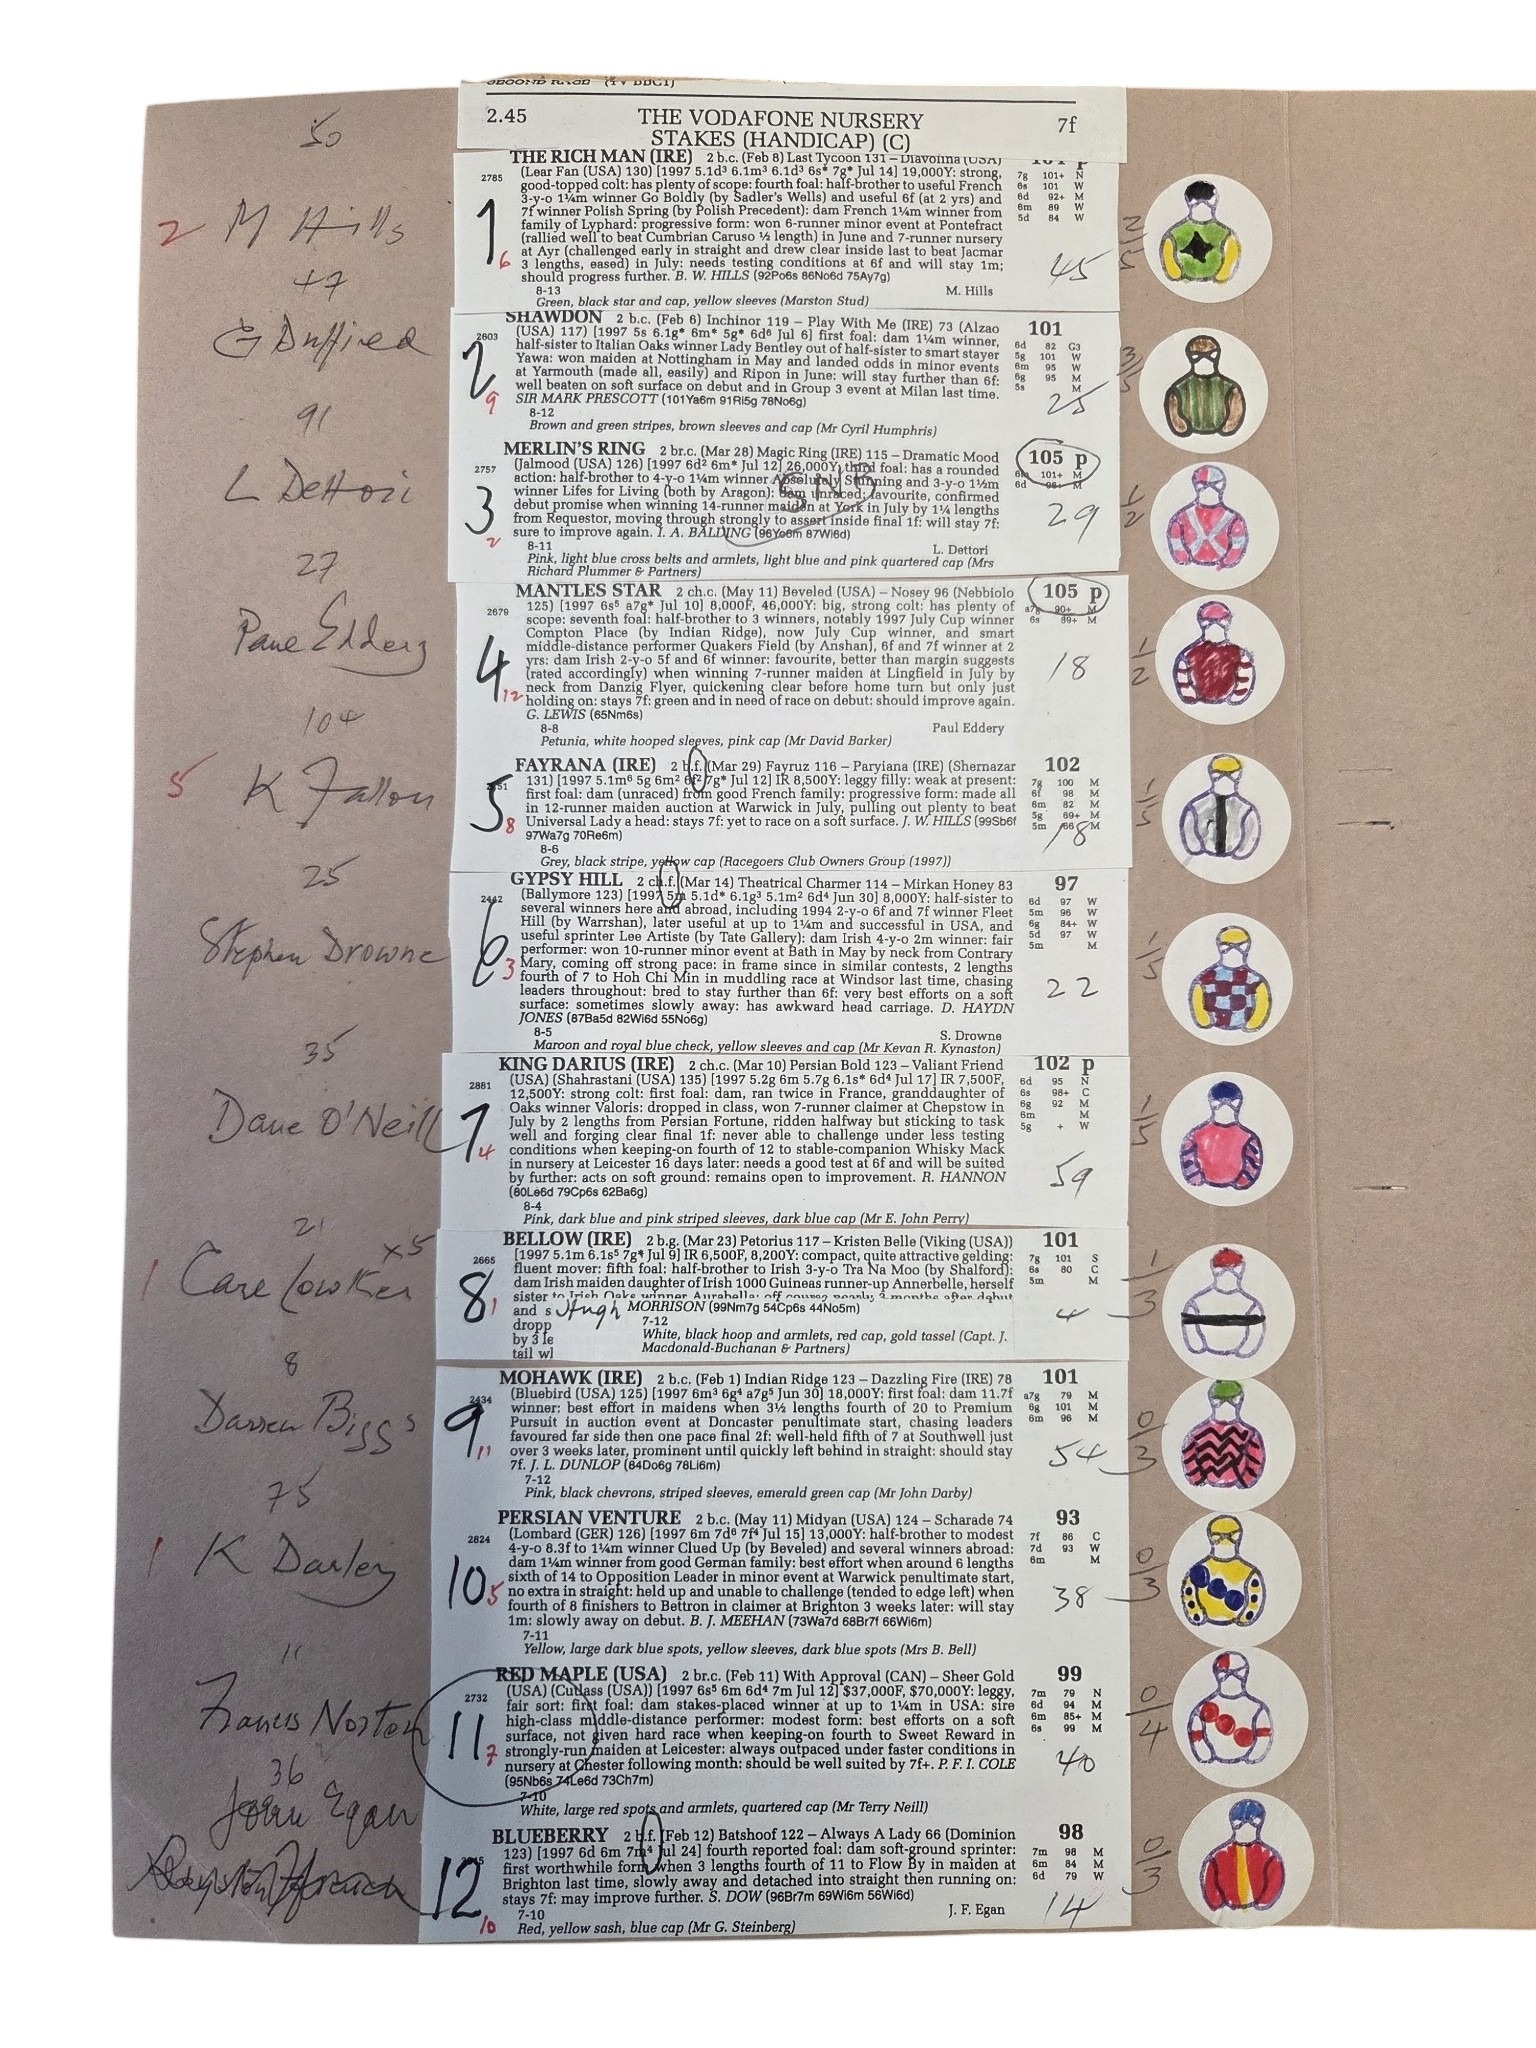 2.45 THE VODAFONE NURSERY 7f
STAKES (HANDICAP) (C)
50
THE RICH MAN (IRE) 2 b.c. (Feb 8) Last Tycoon 131 – Diavolina (USA)
2785 (Lear Fan (USA) 130) [1997 5.1d³ 6.1m³ 6.1d³ 6s* 7g* Jul 14] 19,000Y: strong, 7g 101+ N
good-topped colt: has plenty of scope: fourth foal: half-brother to useful French 6s 101 W
3-y-o 1¼m winner Go Boldly (by Sadler's Wells) and useful 6f (at 2 yrs) and 6d 92+ M
7f winner Polish Spring (by Polish Precedent): dam French 1¼m winner from 6m 89 W
family of Lyphard: progressive form: won 6-runner minor event at Pontefract 5d 84 W
(rallied well to beat Cumbrian Caruso ½ length) in June and 7-runner nursery
at Ayr (challenged early in straight and drew clear inside last to beat Jacmar
3 lengths, eased) in July: needs testing conditions at 6f and will stay 1m;
should progress further. B. W. HILLS (92Po6s 86No6d 75Ay7g)
8-13 M. Hills
Green, black star and cap, yellow sleeves (Marston Stud)
2 M Hills 1 6 45 2/5
47
SHAWDON 2 b.c. (Feb 6) Inchinor 119 – Play With Me (IRE) 73 (Alzao 101
2603 (USA) 117) [1997 5s 6.1g* 6m* 5g* 6d⁶ Jul 6] first foal: dam 1¼m winner, 6d 82 G3
half-sister to Italian Oaks winner Lady Bentley out of half-sister to smart stayer 5g 101 W
Yawa: won maiden at Nottingham in May and landed odds in minor events 6m 95 W
at Yarmouth (made all, easily) and Ripon in June: will stay further than 6f: 6g 95 M
well beaten on soft surface on debut and in Group 3 event at Milan last time. 5s M
SIR MARK PRESCOTT (101Ya6m 91Ri5g 78No6g)
8-12
Brown and green stripes, brown sleeves and cap (Mr Cyril Humphris)
G Duffield 2 9 25 3/5
91
MERLIN'S RING 2 br.c. (Mar 28) Magic Ring (IRE) 115 – Dramatic Mood 105 p
2757 (Jalmood (USA) 126) [1997 6d² 6m* Jul 12] 26,000Y: third foal: has a rounded 6m 101+ M
action: half-brother to 4-y-o 1¼m winner Absolutely Stunning and 3-y-o 1½m 6d 98+ M
winner Lifes for Living (both by Aragon): dam unraced: favourite, confirmed
debut promise when winning 14-runner maiden at York in July by 1¼ lengths
from Requestor, moving through strongly to assert inside final 1f: will stay 7f:
sure to improve again. I. A. BALDING (96Yo6m 87Wi6d)
8-11 L. Dettori
Pink, light blue cross belts and armlets, light blue and pink quartered cap (Mrs
Richard Plummer & Partners)
L Dettori 3 2 29 1/2
27
MANTLES STAR 2 ch.c. (May 11) Beveled (USA) – Nosey 96 (Nebbiolo 105 p
2679 125) [1997 6s⁵ a7g* Jul 10] 8,000F, 46,000Y: big, strong colt: has plenty of a7g 90+ M
scope: seventh foal: half-brother to 3 winners, notably 1997 July Cup winner 6s 89+ M
Compton Place (by Indian Ridge), now July Cup winner, and smart
middle-distance performer Quakers Field (by Anshan), 6f and 7f winner at 2
yrs: dam Irish 2-y-o 5f and 6f winner: favourite, better than margin suggests
(rated accordingly) when winning 7-runner maiden at Lingfield in July by
neck from Danzig Flyer, quickening clear before home turn but only just
holding on: stays 7f: green and in need of race on debut: should improve again.
G. LEWIS (65Nm6s)
8-8 Paul Eddery
Petunia, white hooped sleeves, pink cap (Mr David Barker)
Paul Eddery 4 12 18 1/2
104
FAYRANA (IRE) 2 b.f. (Mar 29) Fayruz 116 – Paryiana (IRE) (Shernazar 102
131) [1997 5.1m⁶ 5g 6m² 6f² 7g* Jul 12] IR 8,500Y: leggy filly: weak at present: 7g 100 M
first foal: dam (unraced) from good French family: progressive form: made all 6f 98 M
in 12-runner maiden auction at Warwick in July, pulling out plenty to beat 6m 82 M
Universal Lady a head: stays 7f: yet to race on a soft surface. J. W. HILLS (99Sb6f 5g 69+ M
97Wa7g 70Re6m) 5m 66 M
8-6
Grey, black stripe, yellow cap (Racegoers Club Owners Group (1997))
5 K Fallon 5 8 18 1/5
25
GYPSY HILL 2 ch.f. (Mar 14) Theatrical Charmer 114 – Mirkan Honey 83 97
2442 (Ballymore 123) [1997 5m 5.1d* 6.1g³ 5.1m² 6d⁴ Jun 30] 8,000Y: half-sister to 6d 97 W
several winners here and abroad, including 1994 2-y-o 6f and 7f winner Fleet 5m 96 W
Hill (by Warrshan), later useful at up to 1¼m and successful in USA, and 6g 84+ W
useful sprinter Lee Artiste (by Tate Gallery): dam Irish 4-y-o 2m winner: fair 5d 97 W
performer: won 10-runner minor event at Bath in May by neck from Contrary 5m M
Mary, coming off strong pace: in frame since in similar contests, 2 lengths
fourth of 7 to Hoh Chi Min in muddling race at Windsor last time, chasing
leaders throughout: bred to stay further than 6f: very best efforts on a soft
surface: sometimes slowly away: has awkward head carriage. D. HAYDN
JONES (87Ba5d 82Wi6d 55No6g)
8-5 S. Drowne
Maroon and royal blue check, yellow sleeves and cap (Mr Kevan R. Kynaston)
Stephen Drowne 6 3 22 1/5
35
KING DARIUS (IRE) 2 ch.c. (Mar 10) Persian Bold 123 – Valiant Friend 102 p
2881 (USA) (Shahrastani (USA) 135) [1997 5.2g 6m 5.7g 6.1s* 6d⁴ Jul 17] IR 7,500F, 6d 95 N
12,500Y: strong colt: first foal: dam, ran twice in France, granddaughter of 6s 98+ C
Oaks winner Valoris: dropped in class, won 7-runner claimer at Chepstow in 6g 92 M
July by 2 lengths from Persian Fortune, ridden halfway but sticking to task 6m M
well and forging clear final 1f: never able to challenge under less testing 5g + W
conditions when keeping-on fourth of 12 to stable-companion Whisky Mack
in nursery at Leicester 16 days later: needs a good test at 6f and will be suited
by further: acts on soft ground: remains open to improvement. R. HANNON
(80Le6d 79Cp6s 62Ba6g)
8-4
Pink, dark blue and pink striped sleeves, dark blue cap (Mr E. John Perry)
Dane O'Neill 7 4 59 1/5
21
BELLOW (IRE) 2 b.g. (Mar 23) Petorius 117 – Kristen Belle (Viking (USA)) 101
2665 [1997 5.1m 6.1s⁵ 7g* Jul 9] IR 6,500F, 8,200Y: compact, quite attractive gelding: 7g 101 S
fluent mover: fifth foal: half-brother to Irish 3-y-o Tra Na Moo (by Shalford): 6s 80 C
dam Irish maiden daughter of Irish 1000 Guineas runner-up Annerbelle, herself 5m M
sister to Irish Oaks winner Aurabella: off course nearly 3 months after debut
and s Hugh MORRISON (99Nm7g 54Cp6s 44No5m)
dropp 7-12
by 3 le White, black hoop and armlets, red cap, gold tassel (Capt. J.
tail wl Macdonald-Buchanan & Partners)
1 x5 8 1 4 1/3
8
MOHAWK (IRE) 2 b.c. (Feb 1) Indian Ridge 123 – Dazzling Fire (IRE) 78 101
2434 (Bluebird (USA) 125) [1997 6m³ 6g⁴ a7g⁵ Jun 30] 18,000Y: first foal: dam 11.7f a7g 79 M
winner: best effort in maidens when 3½ lengths fourth of 20 to Premium 6g 101 M
Pursuit in auction event at Doncaster penultimate start, chasing leaders 6m 96 M
favoured far side then one pace final 2f: well-held fifth of 7 at Southwell just
over 3 weeks later, prominent until quickly left behind in straight: should stay
7f. J. L. DUNLOP (84Do6g 78Li6m)
7-12
Pink, black chevrons, striped sleeves, emerald green cap (Mr John Darby)
Darren Biggs 9 11 54 0/3
75
PERSIAN VENTURE 2 b.c. (May 11) Midyan (USA) 124 – Scharade 74 93
2824 (Lombard (GER) 126) [1997 6m 7d⁶ 7f⁴ Jul 15] 13,000Y: half-brother to modest 7f 86 C
4-y-o 8.3f to 1¼m winner Clued Up (by Beveled) and several winners abroad: 7d 93 W
dam 1¼m winner from good German family: best effort when around 6 lengths 6m M
sixth of 14 to Opposition Leader in minor event at Warwick penultimate start,
no extra in straight: held up and unable to challenge (tended to edge left) when
fourth of 8 finishers to Bettron in claimer at Brighton 3 weeks later: will stay
1m: slowly away on debut. B. J. MEEHAN (73Wa7d 68Br7f 66Wi6m)
7-11
Yellow, large dark blue spots, yellow sleeves, dark blue spots (Mrs B. Bell)
1 K Darley 10 5 38 0/3
11
RED MAPLE (USA) 2 br.c. (Feb 11) With Approval (CAN) – Sheer Gold 99
2732 (USA) (Cutlass (USA)) [1997 6s⁵ 6m 6d⁴ 7m Jul 12] $37,000F, $70,000Y: leggy, 7m 79 N
fair sort: first foal: dam stakes-placed winner at up to 1¼m in USA: sire 6d 94 M
high-class middle-distance performer: modest form: best efforts on a soft 6m 85+ M
surface, not given hard race when keeping-on fourth to Sweet Reward in 6s 99 M
strongly-run maiden at Leicester: always outpaced under faster conditions in
nursery at Chester following month: should be well suited by 7f+. P. F. I. COLE
(95Nb6s 74Le6d 73Ch7m)
7-10
White, large red spots and armlets, quartered cap (Mr Terry Neill)
Francis Norton 11 7 40 0/4
36
BLUEBERRY 2 b.f. (Feb 12) Batshoof 122 – Always A Lady 66 (Dominion 98
123) [1997 6d 6m 7m⁴ Jul 24] fourth reported foal: dam soft-ground sprinter: 7m 98 M
first worthwhile form when 3 lengths fourth of 11 to Flow By in maiden at 6m 84 M
Brighton last time, slowly away and detached into straight then running on: 6d 79 W
stays 7f: may improve further. S. DOW (96Br7m 69Wi6m 56Wi6d)
7-10 J. F. Egan
Red, yellow sash, blue cap (Mr G. Steinberg)
John Egan 12 10 14 0/3